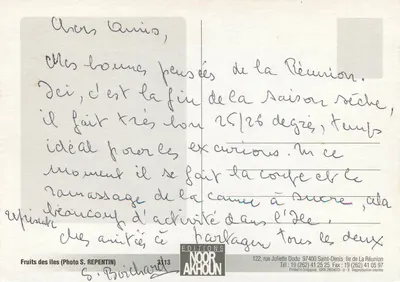 Chers Amis,
Mes bonnes pensées de la Réunion.
Ici, c'est la fin de la saison sèche,
il fait très bon 25/26 degrés, temps
idéal pour les excursions. En ce
moment il se fait la coupe et le
ramassage de la canne à sucre, cela
représente beaucoup d'activité dans l'Ile.
Mes amitiés à partager tous les deux
S.
Fruits des îles (Photo S. REPENTIN)
3113
EDITIONS
NOOR
AKHOUN
122, rue Juliette Dodu 97400 Saint-Denis Ile de La Réunion
Tél : 19 (262) 41 25 25 Fax : (262) 41 05 97